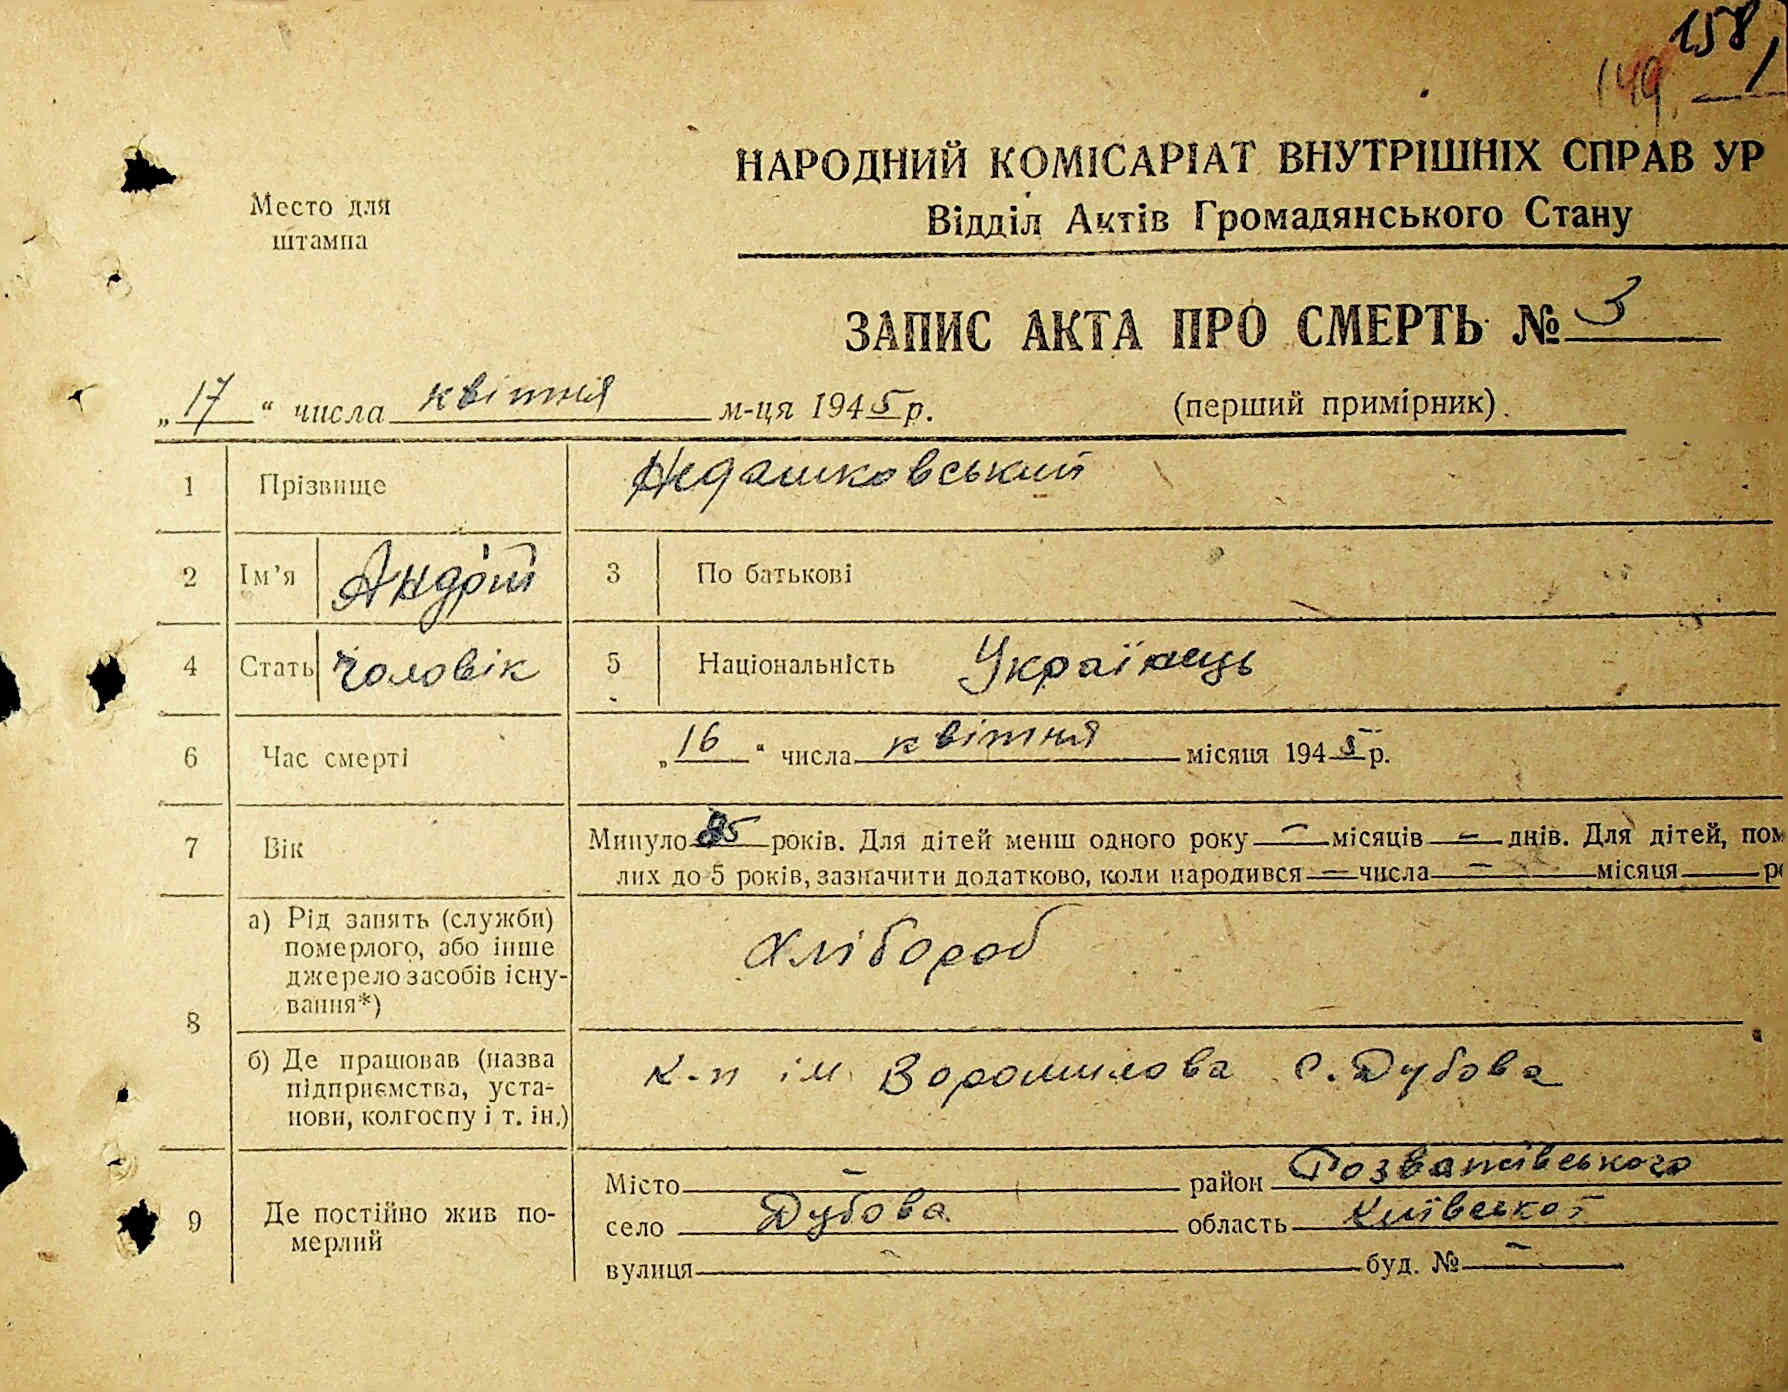 158
149
НАРОДНИЙ КОМІСАРІАТ ВНУТРІШНІХ СПРАВ УР
Відділ Актів Громадянського Стану
Место для
штампа
ЗАПИС АКТА ПРО СМЕРТЬ № 3
„17“ числа квітня м-ця 1945 р.
(перший примірник).
1 Прізвище Недашковський
2 Ім’я Андрій 3 По батькові
4 Стать Чоловік 5 Національність Українець
6 Час смерті „16“ числа квітня місяця 1945 р.
7 Вік Минуло 85 років. Для дітей менш одного року — місяців — днів. Для дітей, пом
лих до 5 років, зазначити додатково, коли народився — числа — місяця ро
8 а) Рід занять (служби)
померлого, або інше
джерело засобів існу-
вання*)
Хлібороб
б) Де працював (назва
підприємства, уста-
нови, колгоспу і т. ін.)
к-п ім Ворошилова с. Дубова
9 Де постійно жив по-
мерлий
Місто — район Розважівського
село Дубова область Київської
вулиця — буд. № —